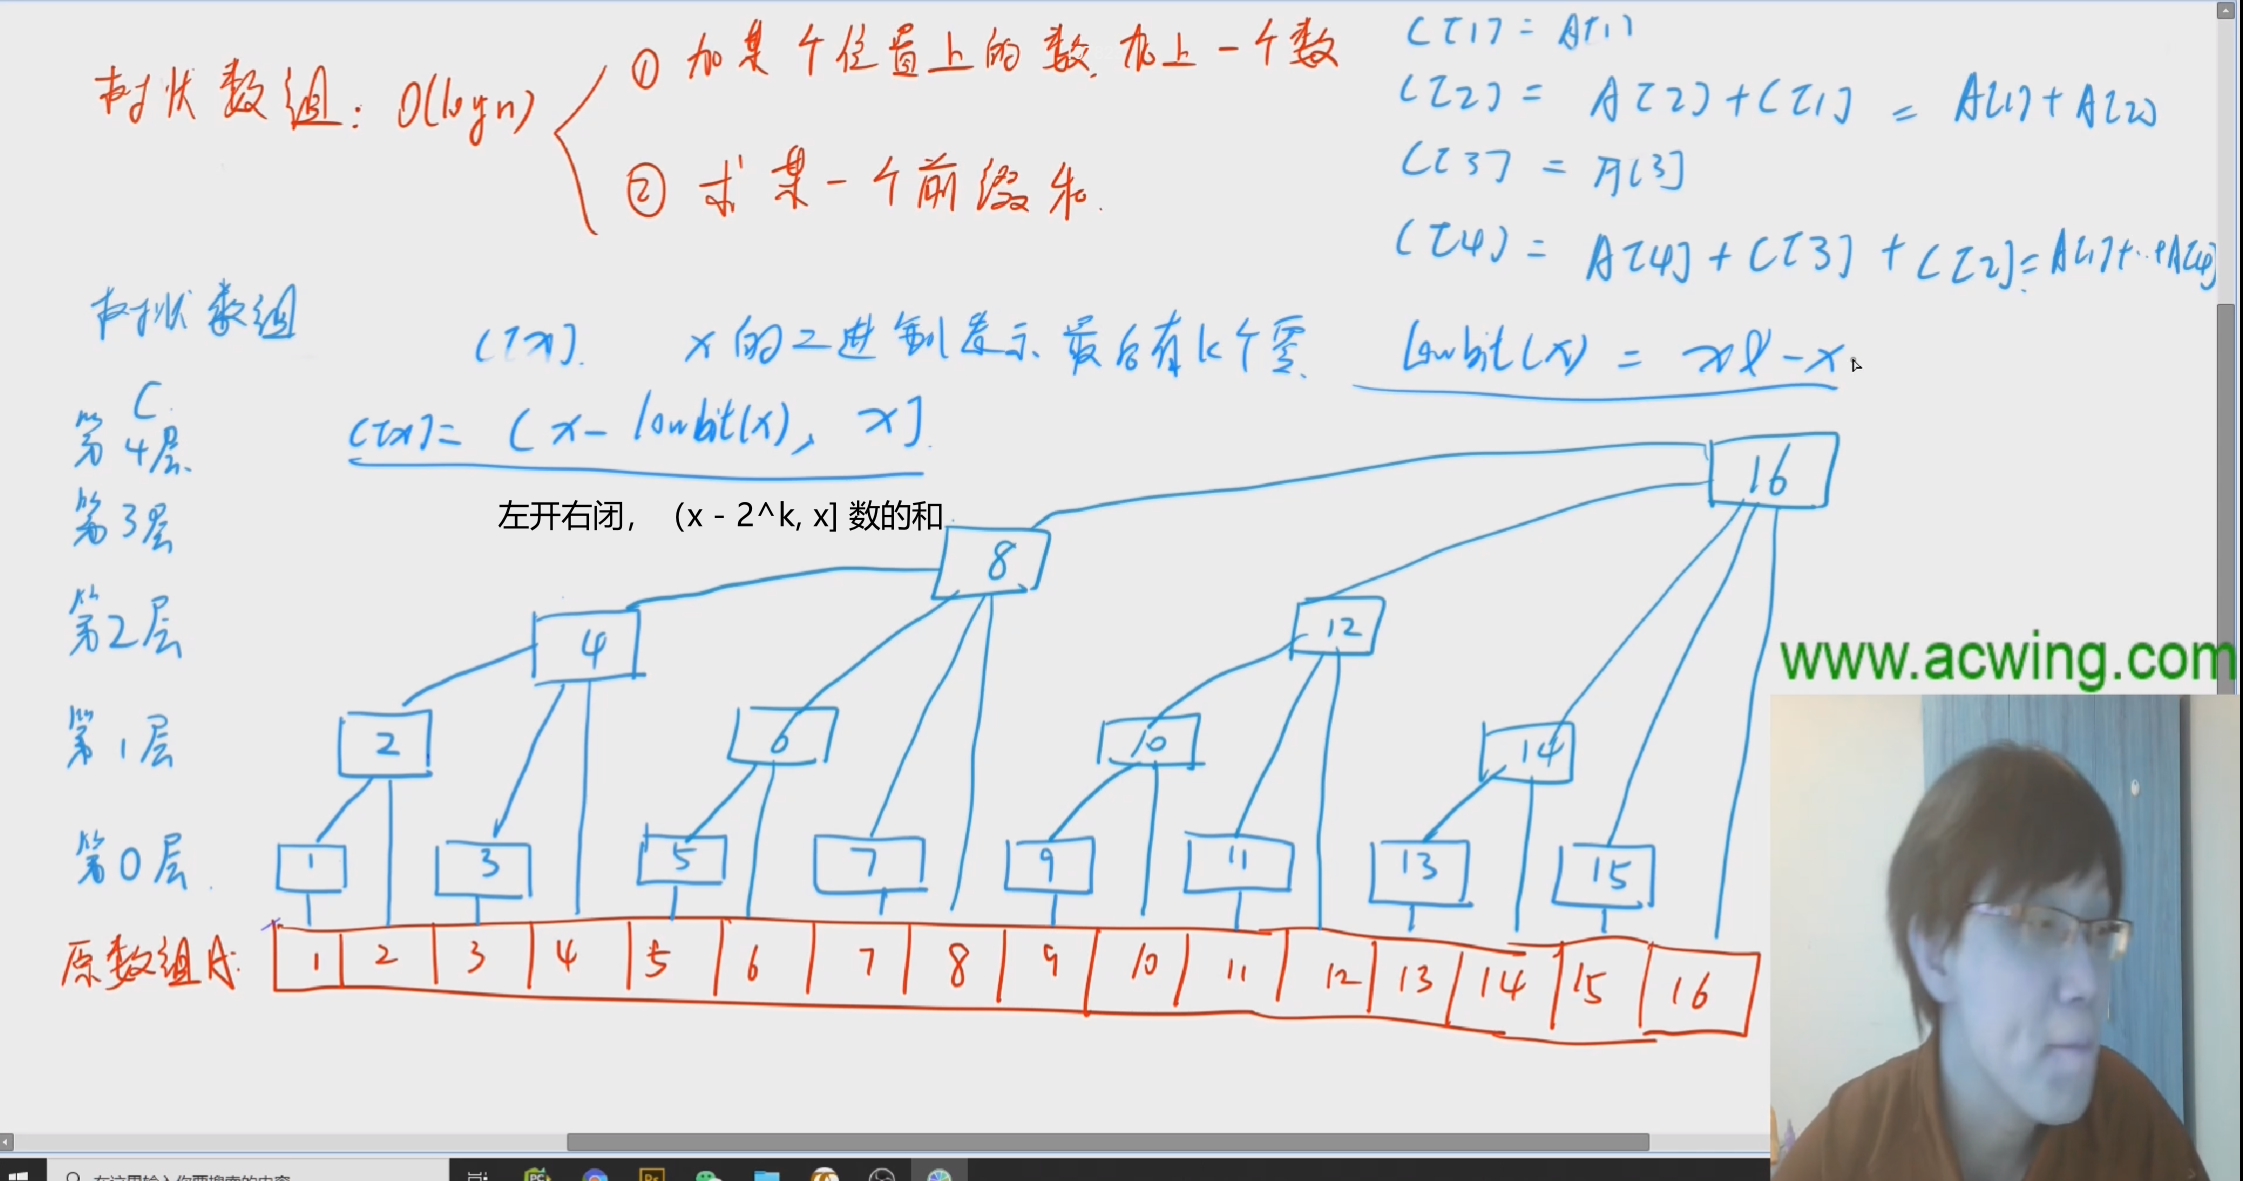 树状数组: O(logn)
① 加某个位置上的数, 加上一个数
② 求某一个前缀和.
C[1] = A[1]
C[2] = A[2] + C[1] = A[1] + A[2]
C[3] = A[3]
C[4] = A[4] + C[3] + C[2] = A[1]+..+A[4]
树状数组
C[x]. x的二进制表示 最后有k个零. lowbit(x) = x&-x
C[x]= (x-lowbit(x), x]
左开右闭， (x - 2^k, x] 数的和
C
第4层
第3层
第2层
第1层
第0层
16
8
12
4
2 6 10 14
1 3 5 7 9 11 13 15
原数组A: 1 2 3 4 5 6 7 8 9 10 11 12 13 14 15 16
www.acwing.com
在这里输入你要搜索的内容